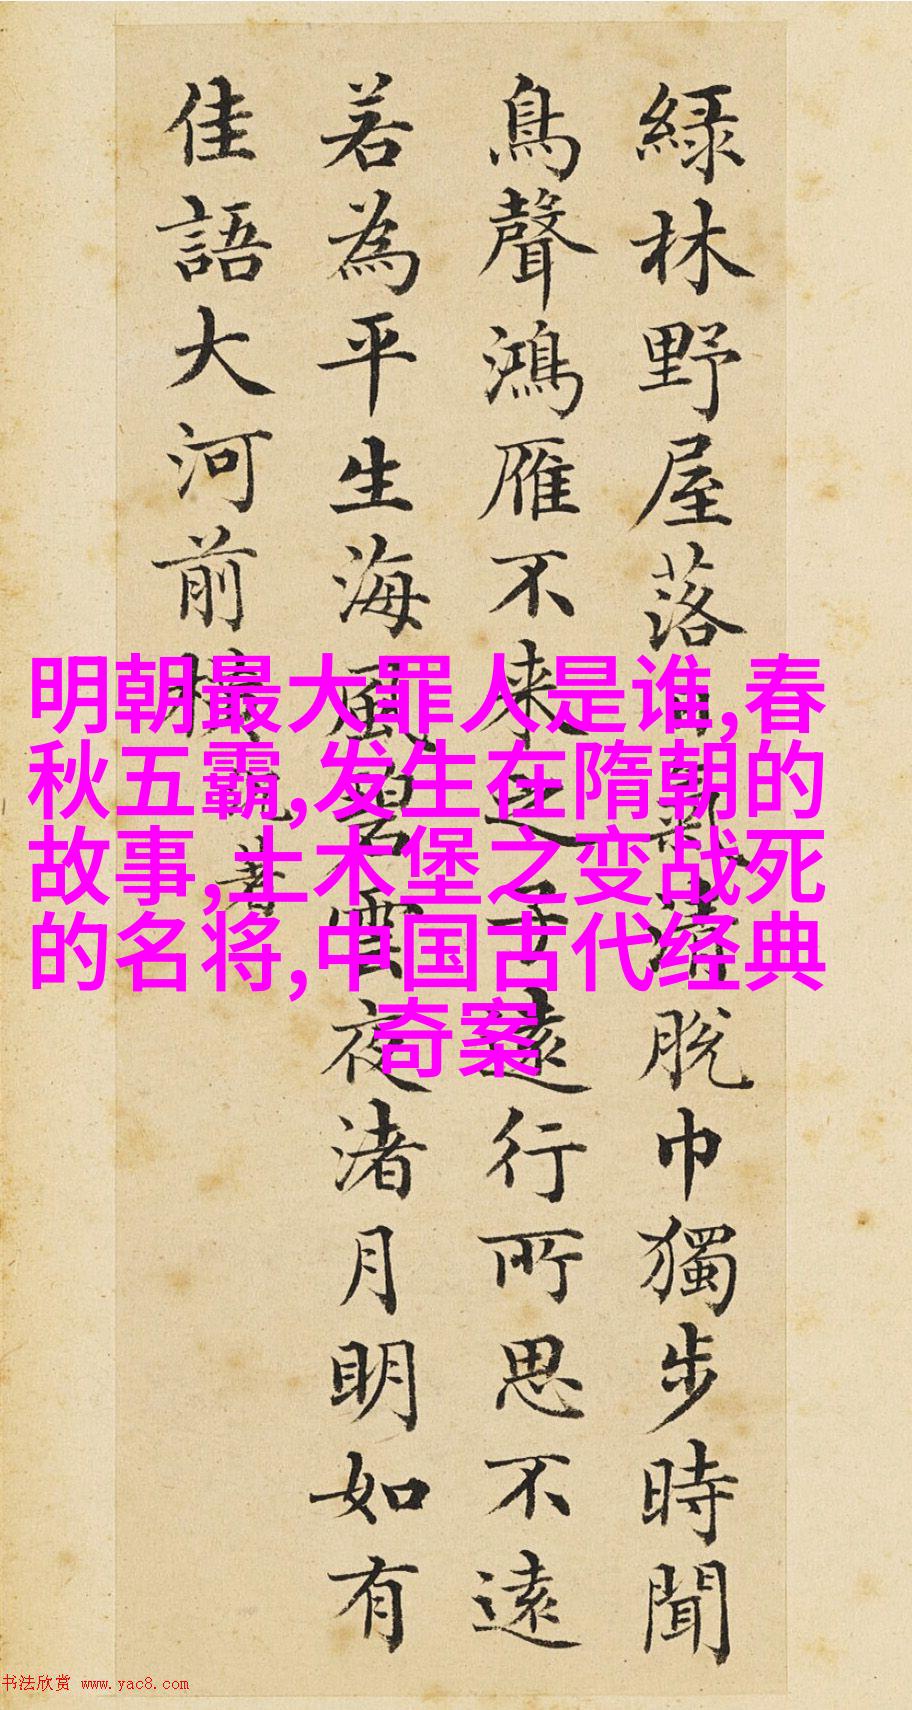 綠林野屋落日氣清脫巾獨步時聞
鳥聲鴻雁不來之子遠行所思不遠
若為平生海風碧雲夜渚月明如有
佳語大河前橫
明朝最大罪人是谁,春
秋五霸,发生在隋朝的
故事,土木堡之变战死
的名将,中国古代经典
奇案
书法欣赏 www.yac8.com